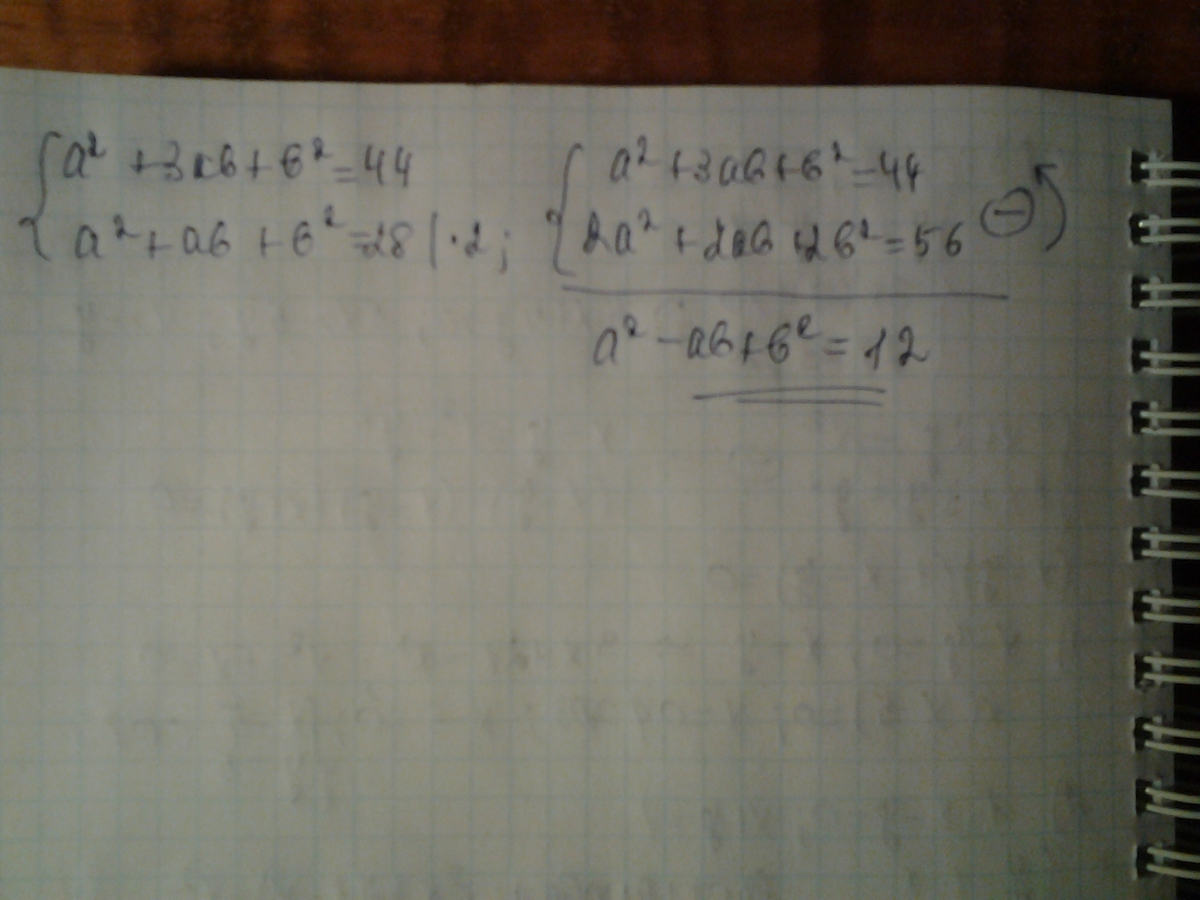 { a² + 3ab + b² = 44
{ a² + ab + b² = 28 | · 2 ;
{ a² + 3ab + b² = 44
{ 2a² + 2ab + 2b² = 56 (−)
a² − ab + b² = 12